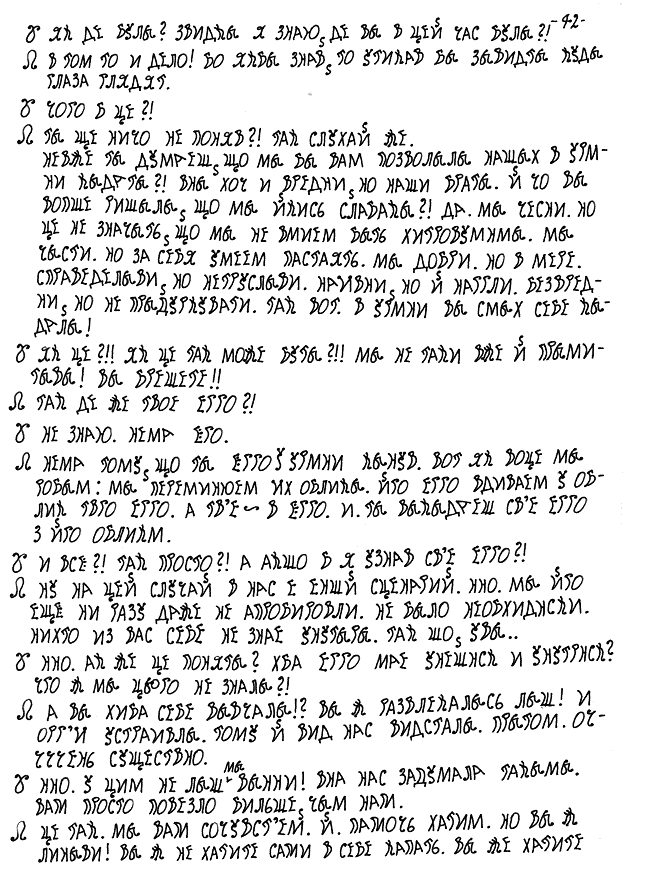 Ꙋ ЯК ДЕ БУЛЫ? ЗВИДКЫ Я ЗНАЮ, ДЕ ВЫ В ЦЕЙ ЧАС БУЛЫ?! -42-
Ω В ТОМ ТО И ДЕЛО! БО ЯКБЫ ЗНАВ, ТО УТИКАВ БЫ ЗВЫДТЫ КУДЫ
ГЛАЗА ГЛЯДЯТ.
Ꙋ ЧОГО В ЦЕ?!
Ω ТЫ ЩЕ НИЧО НЕ ПОНЯВ?! ТАК СЛУХАЙ ЖЕ.
НЕВЖЕ ТЫ ДУМАЕШ, ЩО МЫ БЫ ВАМ ПОЗВОЛЫЛЫ НАШЫХ В УГМ-
НИ КЫДАТЫ?! ВНЫ ХОЧ И ВРЕДНИ, НО НАШИ БРАТЫ. Й ЧО ВЫ
ВОПШЕ РИШЫЛЫ, ЩО МЫ ЙКИСЬ СЛАБАКЫ?! ДА. МЫ ЧЕСНИ. НО
ЦЕ НЕ ЗНАЧЫТЬ, ЩО МЫ НЕ ВМИЕМ БЫТЬ ХИТРОВУМНМЫ. МЫ
ЧЫСТИ. НО ЗА СЕБЯ УМЕЕМ ПАСТАЯТЬ. МЫ ДОБРИ. НО В МЕРЕ.
СПРАВЕДЕЛЫВИ, НО НЕТРУСЛЫВИ. НАИВНИ, НО Й НАГЛИ. БЕЗВРЕД-
НИ, НО НЕ ПРЫДУРКУВАТИ. ТАК ВОТ. В УГМНИ ВЫ СМЫХ СЕБЕ КЫ-
ДАЛЫ!
Ꙋ ЯК ЦЕ?!! ЯК ЦЕ ТАК МОЖЕ БУТЫ?!! МЫ НЕ ТАКИ ВЖЕ Й ПРЫМИ-
ТЫВЫ! ВЫ БРЕШЕТЕ!!
Ω ТАК ДЕ ЖЕ ТВОЕ ЕГГО?!
Ꙋ НЕ ЗНАЮ. НЕМА ЕГО.
Ω НЕМА ТОМУ, ЩО ТЫ ЕГГО У УГМНИ КЫНУВ. ВОТ ЯК ВОЦЕ МЫ
РОБЫМ: МЫ ПЕРЕМИНЮЕМ ИХ ОБЛИКЫ. ЙГО ЕГГО ВДИВАЕМ У ОБ-
ЛИК ТВГО ЕГГО. А ТВ'Е ~ В ЕГГО. И. ТЫ ВЫКЫДАЕШ СВ'Е ЕГГО
З ЙГО ОБЛИКМ.
Ꙋ И ВСЕ?! ТАК ПРОСТО?! А АКШО Б Я УЗНАВ СВ'Е ЕГГО?!
Ω НУ НА ЦЕЙ СЛУЧАЙ В НАС Е ЕНШЙ СЦЕНАРИЙ. ННО. МЫ ЙГО
ЕЩЕ НИ РАЗУ ДАЖЕ НЕ АПРОБИРОВЛИ. НЕ БЫЛО НЕОБХИДНСКИ.
НИХТО ИЗ ВАС СЕБЕ НЕ ЗНАЕ УНУТРЫ. ТАК ШО, УВЫ..
Ꙋ ННО. АК ЖЕ ЦЕ ПОНЯТЫ? ХБА ЕГГО МАЕ УНЕШНСК И УНУТРНСК?
ЧТО Ж МЫ ЦЬОГО НЕ ЗНАЛЫ?!
Ω А ВЫ ХИБА СЕБЕ ВЫВЧАЛЫ!? ВЫ Ж РАЗВЛЕКАЛЫСЬ ЛЫШ! И
ОРГ'И УСТРАИВЛЫ. ТОМУ Й ВИД НАС ВИДСТАЛЫ. ПРЫТОМ. ОЧ-
ЧЧЧЕНЬ СУЩЕСТВНО.
Ꙋ ННО. У ЦИМ НЕ ЛЫШ МЫ ВЫННИ! ВНА НАС ЗАДУМАЛА ТАКЫМЫ.
ВАМ ПРОСТО ПОВЕЗЛО БИЛЬШЕ, ЧЫМ НАМ.
Ω ЦЕ ТАК. МЫ ВАМ СОЧУВСТ'ЕМ. Й. ПАМОЧЬ ХАТИМ. НО ВЫ Ж
ЛИНЫВИ! ВЫ Ж НЕ ХАТИТЕ САМИ В СЕБЕ КАПАТЬ. ВЫ ЖЕ ХАТИТЕ